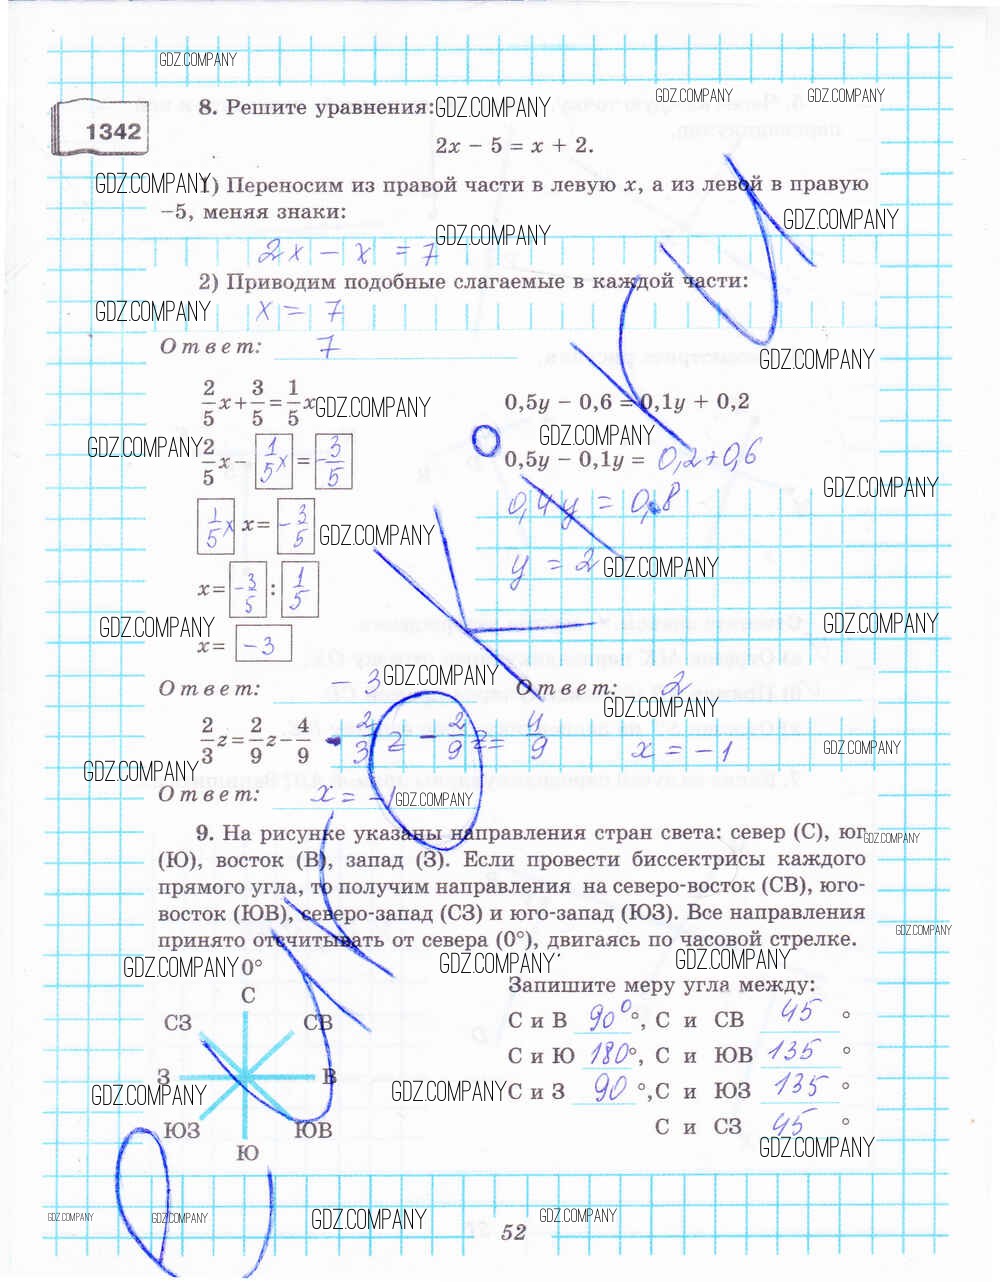 GDZ.COMPANY
8. Решите уравнения: GDZ.COMPANY GDZ.COMPANY GDZ.COMPANY
1342
2x − 5 = x + 2.
GDZ.COMPANY 1) Переносим из правой части в левую x, а из левой в правую
−5, меняя знаки: GDZ.COMPANY
GDZ.COMPANY
2x − x = 7
2) Приводим подобные слагаемые в каждой части:
GDZ.COMPANY x = 7
Ответ: 7
GDZ.COMPANY
2/5 x + 3/5 = 1/5 x GDZ.COMPANY
GDZ.COMPANY 2/5 x − 1/5 x = −3/5
1/5 x x = −3/5 GDZ.COMPANY
x = −3/5 : 1/5
GDZ.COMPANY
x = −3
Ответ: −3 GDZ.COMPANY
0,5y − 0,6 = 0,1y + 0,2
GDZ.COMPANY
0,5y − 0,1y = 0,2+0,6
GDZ.COMPANY
0,4y = 0,8
y = 2 GDZ.COMPANY
GDZ.COMPANY
Ответ: 2
GDZ.COMPANY
2/3 z = 2/9 z − 4/9 - 2/3 z − 2/9 z = 4/9 x = −1
GDZ.COMPANY
GDZ.COMPANY
Ответ: x = −1 GDZ.COMPANY
9. На рисунке указаны направления стран света: север (С), юг GDZ.COMPANY
(Ю), восток (В), запад (З). Если провести биссектрисы каждого
прямого угла, то получим направления на северо-восток (СВ), юго-
восток (ЮВ), северо-запад (СЗ) и юго-запад (ЮЗ). Все направления
GDZ.COMPANY
принято отсчитывать от севера (0°), двигаясь по часовой стрелке.
GDZ.COMPANY 0° GDZ.COMPANY GDZ.COMPANY
С
СЗ СВ
З В
GDZ.COMPANY
ЮЗ ЮВ
Ю
Запишите меру угла между:
С и В 90° °, С и СВ 45 °
С и Ю 180 °, С и ЮВ 135 °
GDZ.COMPANY С и З 90 °, С и ЮЗ 135 °
С и СЗ 45 °
GDZ.COMPANY
GDZ.COMPANY GDZ.COMPANY GDZ.COMPANY 52 GDZ.COMPANY